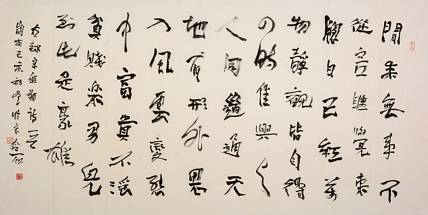 閒來無事不
從容睡覺東
窗日已紅萬
物靜觀皆自得
四時佳興與
人同道通天
地有形外思
入風雲變態
中富貴不淫
貧賤樂男兒
到此是豪雄